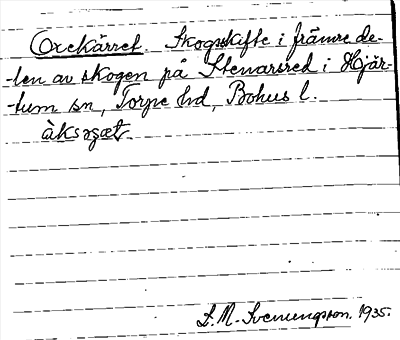 Oxekärret. Skogsskifte i främre de-
-len av skogen på Stenarsred i Hjär-
-tum sn, Torpe hd, Bohus l.
S. M. Svenungsson. 1935.